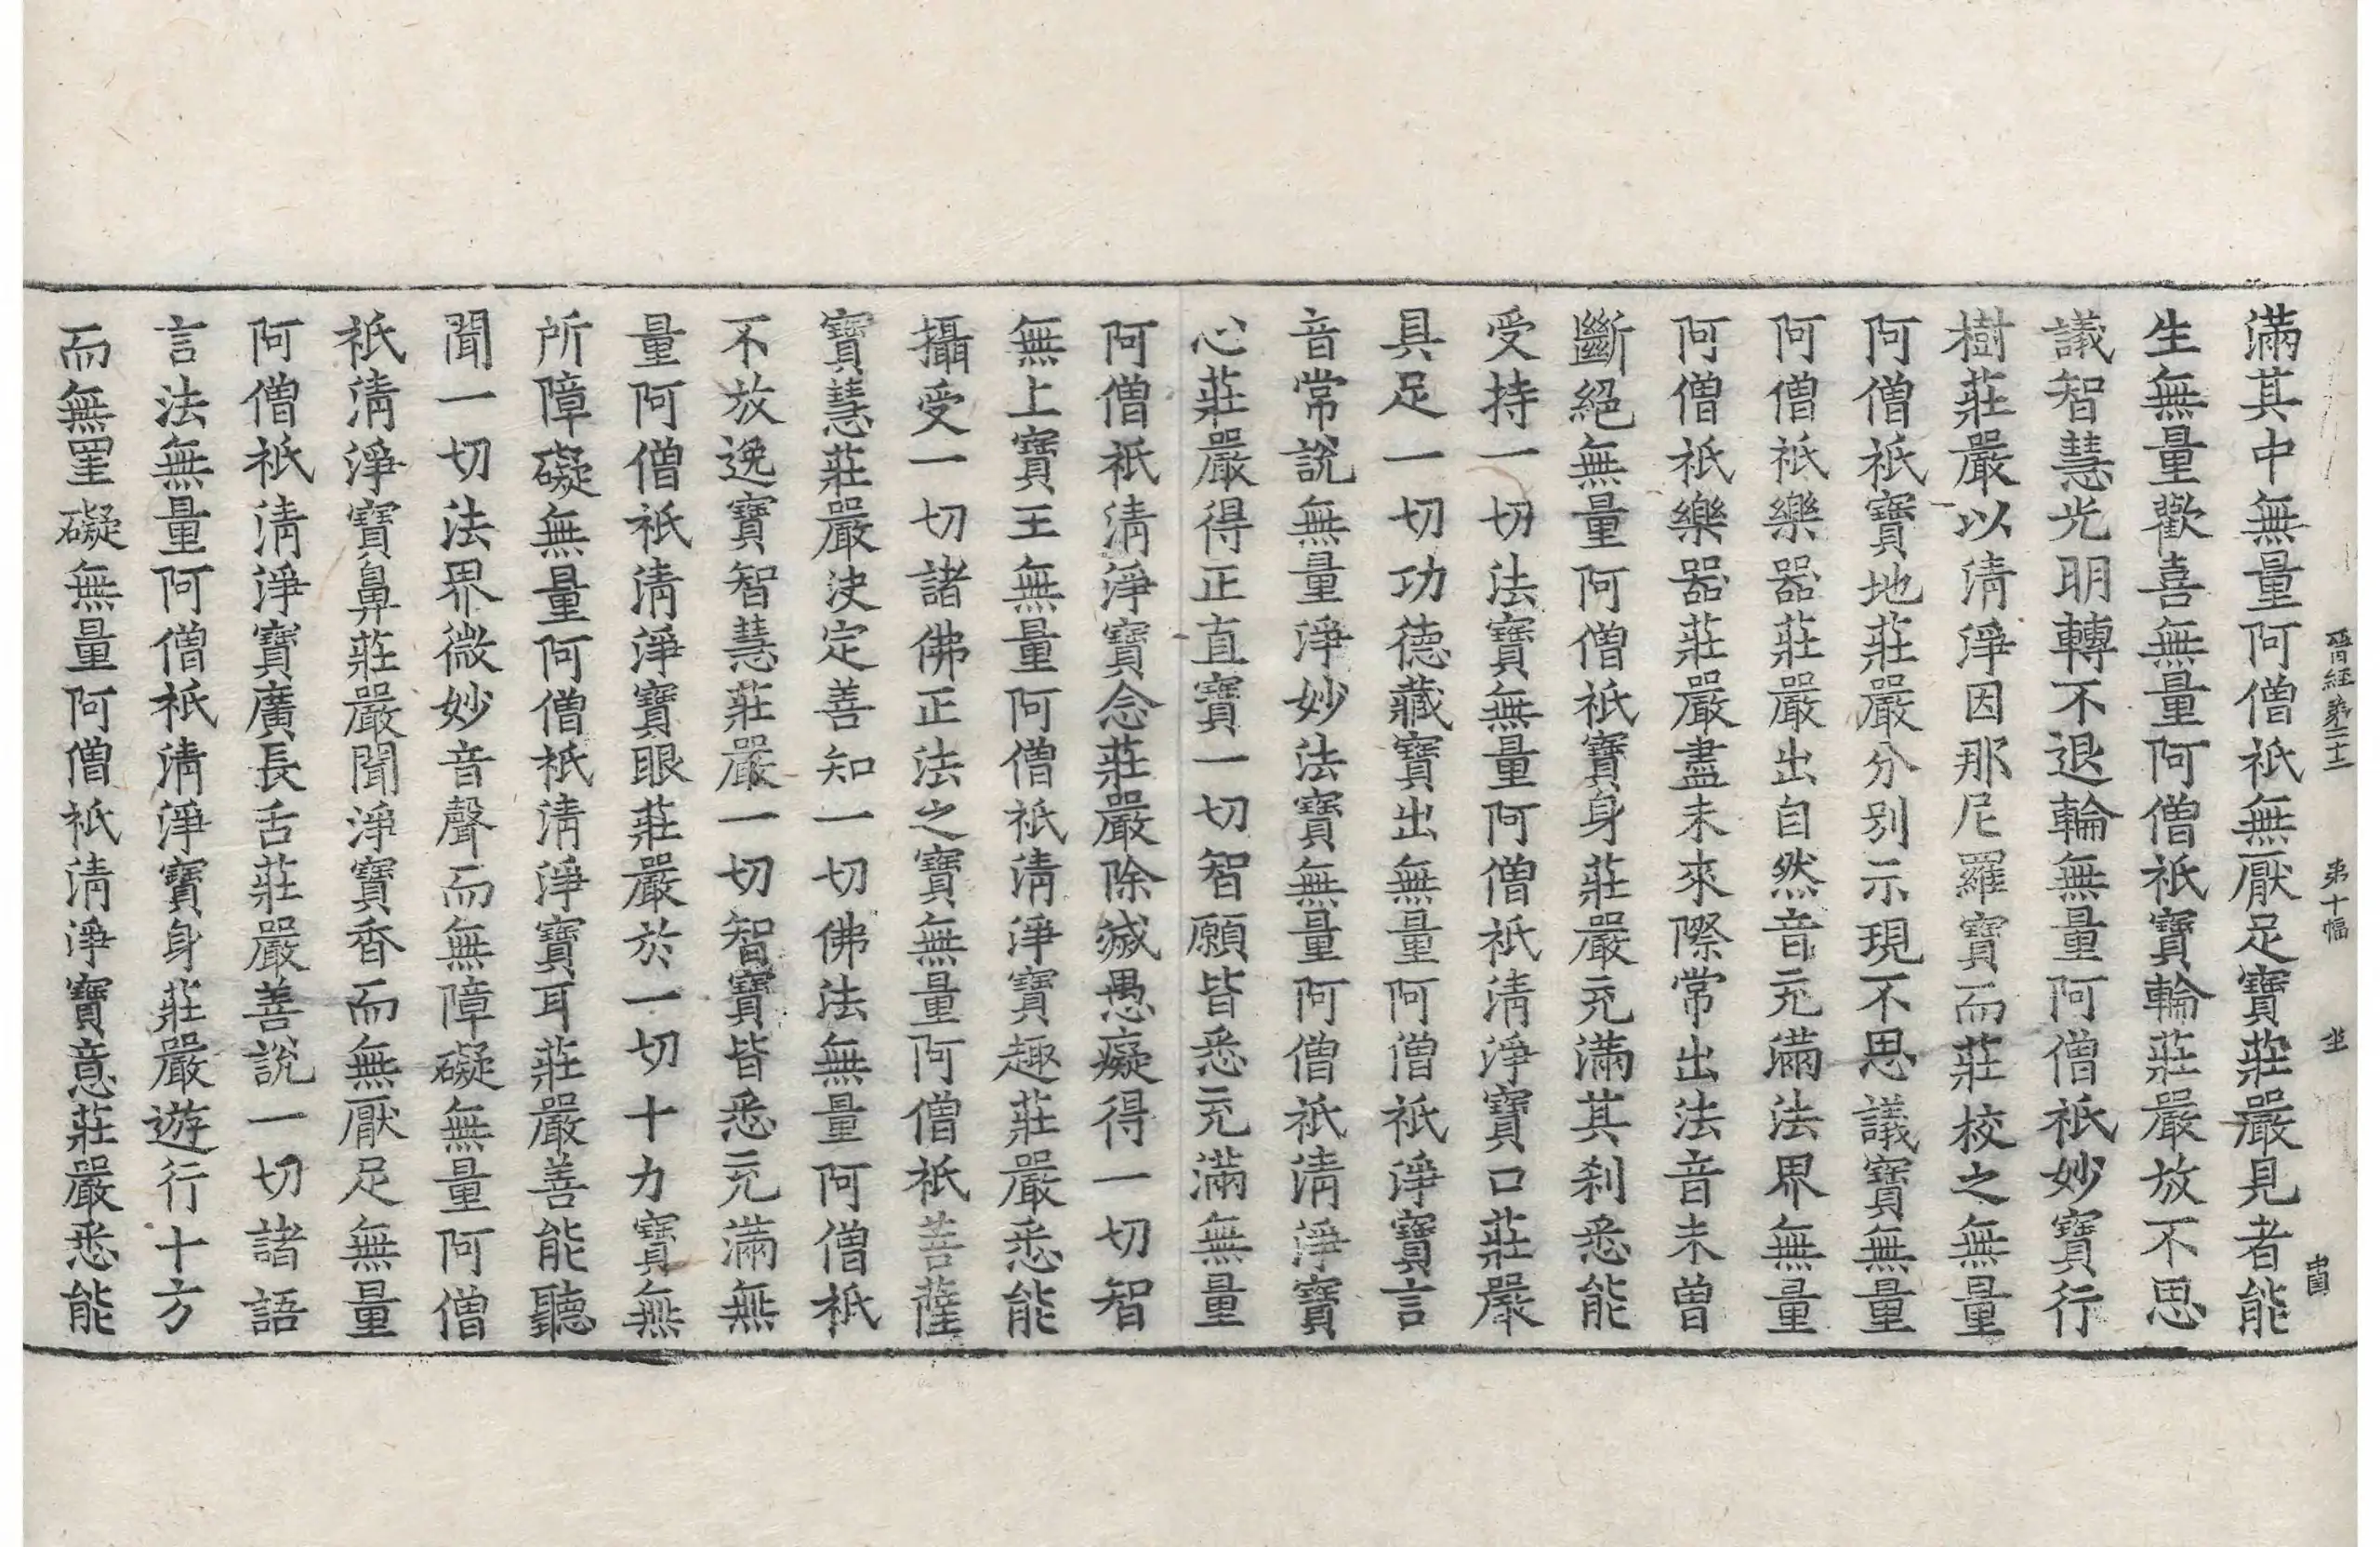 晉經第二十二 第十幅 坐
滿其中無量阿僧祇無厭足寶莊嚴見者能
生無量歡喜無量阿僧祇寶輪莊嚴放不思
議智慧光明轉不退輪無量阿僧祇妙寶行
樹莊嚴以清淨因那尼羅寶而莊校之無量
阿僧祇寶地莊嚴分別示現不思議寶無量
阿僧祇樂器莊嚴出自然音充滿法界無量
阿僧祇樂器莊嚴盡未來際常出法音未曾
斷絕無量阿僧祇寶身莊嚴充滿其刹悉能
受持一切法寶無量阿僧祇清淨寶口莊嚴
具足一切功德藏寶出無量阿僧祇淨寶言
音常說無量淨妙法寶無量阿僧祇清淨寶
心莊嚴得正直寶一切智願皆悉充滿無量
阿僧祇清淨寶念莊嚴除滅愚癡得一切智
無上寶王無量阿僧祇清淨寶趣莊嚴悉能
攝受一切諸佛正法之寶無量阿僧祇菩薩
寶慧莊嚴決定善知一切佛法無量阿僧祇
不放逸寶智慧莊嚴一切智寶皆悉充滿無
量阿僧祇清淨寶眼莊嚴於一切十力寶無
所障礙無量阿僧祇清淨寶耳莊嚴善能聽
聞一切法界微妙音聲而無障礙無量阿僧
祇清淨寶鼻莊嚴聞淨寶香而無厭足無量
阿僧祇清淨寶廣長舌莊嚴善說一切諸語
言法無量阿僧祇清淨寶身莊嚴遊行十方
而無罣礙無量阿僧祇清淨寶意莊嚴悉能